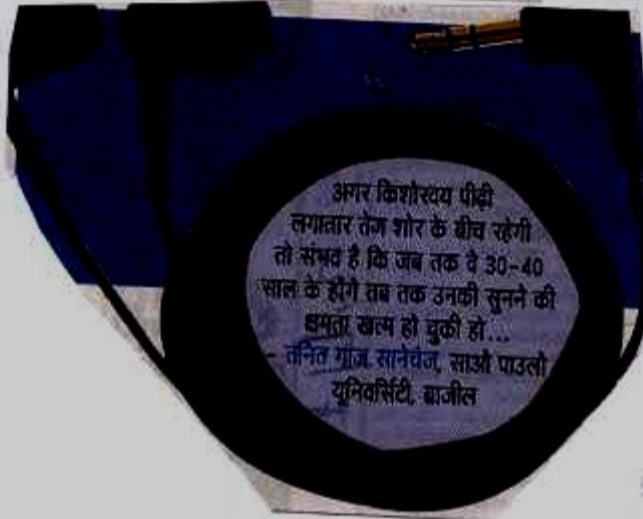 अगर किशोरवय पीढ़ी
लगातार तेज शोर के बीच रहेगी
तो संभव है कि जब तक वे 30-40
साल के होंगे तब तक उनकी सुनने की
क्षमता खत्म हो चुकी हो...
- तनित गांज सानेचेज, साओ पाउलो
यूनिवर्सिटी, ब्राजील